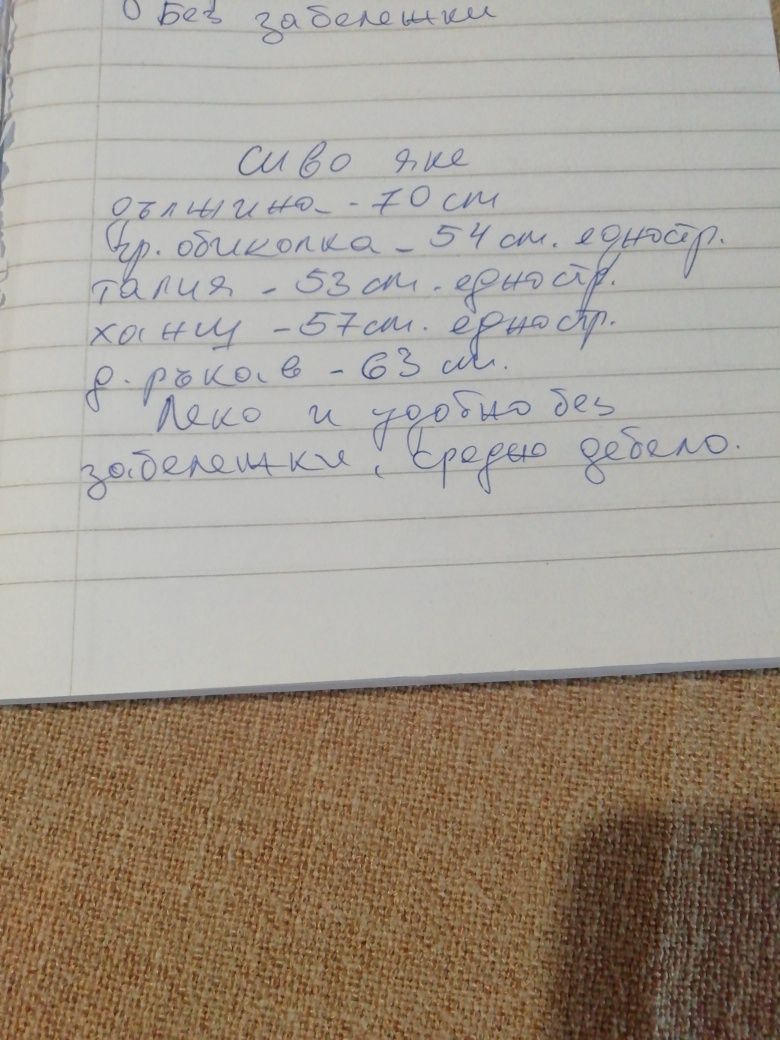 Без забележки
сиво яке
дължина - 70 cm
гр. обиколка - 54 см. едностр.
талия - 53 см. едностр.
ханш - 57 см. едностр.
д. ръкав - 63 см.
Леко и удобно без
забележки, средно дебело.